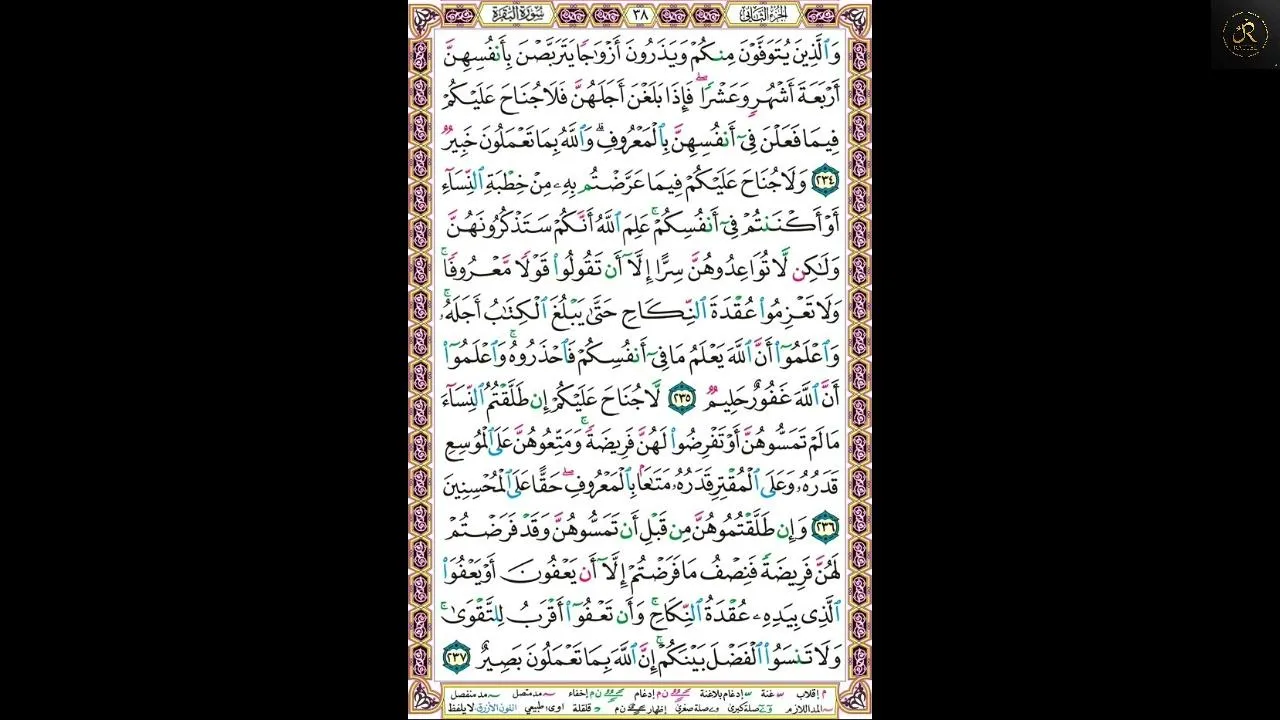 الجزء الثاني
٣٨
سورة البقرة
وَٱلَّذِينَ يُتَوَفَّوْنَ مِنكُمْ وَيَذَرُونَ أَزْوَٰجًا يَتَرَبَّصْنَ بِأَنفُسِهِنَّ
أَرْبَعَةَ أَشْهُرٍ وَعَشْرًا ۖ فَإِذَا بَلَغْنَ أَجَلَهُنَّ فَلَا جُنَاحَ عَلَيْكُمْ
فِيمَا فَعَلْنَ فِىٓ أَنفُسِهِنَّ بِٱلْمَعْرُوفِ ۗ وَٱللَّهُ بِمَا تَعْمَلُونَ خَبِيرٌ
٢٣٤ وَلَا جُنَاحَ عَلَيْكُمْ فِيمَا عَرَّضْتُم بِهِۦ مِنْ خِطْبَةِ ٱلنِّسَآءِ
أَوْ أَكْنَنتُمْ فِىٓ أَنفُسِكُمْ ۚ عَلِمَ ٱللَّهُ أَنَّكُمْ سَتَذْكُرُونَهُنَّ
وَلَٰكِن لَّا تُوَاعِدُوهُنَّ سِرًّا إِلَّآ أَن تَقُولُوا۟ قَوْلًا مَّعْرُوفًا ۚ
وَلَا تَعْزِمُوا۟ عُقْدَةَ ٱلنِّكَاحِ حَتَّىٰ يَبْلُغَ ٱلْكِتَٰبُ أَجَلَهُۥ ۚ
وَٱعْلَمُوٓا۟ أَنَّ ٱللَّهَ يَعْلَمُ مَا فِىٓ أَنفُسِكُمْ فَٱحْذَرُوهُ ۚ وَٱعْلَمُوٓا۟
أَنَّ ٱللَّهَ غَفُورٌ حَلِيمٌ ٢٣٥ لَّا جُنَاحَ عَلَيْكُمْ إِن طَلَّقْتُمُ ٱلنِّسَآءَ
مَا لَمْ تَمَسُّوهُنَّ أَوْ تَفْرِضُوا۟ لَهُنَّ فَرِيضَةً ۚ وَمَتِّعُوهُنَّ عَلَى ٱلْمُوسِعِ
قَدَرُهُۥ وَعَلَى ٱلْمُقْتِرِ قَدَرُهُۥ مَتَٰعًۢا بِٱلْمَعْرُوفِ ۖ حَقًّا عَلَى ٱلْمُحْسِنِينَ
٢٣٦ وَإِن طَلَّقْتُمُوهُنَّ مِن قَبْلِ أَن تَمَسُّوهُنَّ وَقَدْ فَرَضْتُمْ
لَهُنَّ فَرِيضَةً فَنِصْفُ مَا فَرَضْتُمْ إِلَّآ أَن يَعْفُونَ أَوْ يَعْفُوَا۟
ٱلَّذِى بِيَدِهِۦ عُقْدَةُ ٱلنِّكَاحِ ۚ وَأَن تَعْفُوٓا۟ أَقْرَبُ لِلتَّقْوَىٰ ۚ
وَلَا تَنسَوُا۟ ٱلْفَضْلَ بَيْنَكُمْ ۚ إِنَّ ٱللَّهَ بِمَا تَعْمَلُونَ بَصِيرٌ ٢٣٧
م إقلاب غنة إدغام بلاغنة ن م إدغام ن م إخفاء مد متصل مد منفصل
المد اللازم صلة كبرى صلة صغرى إظهار ن م قلقلة اوى: طبيعي اللون الأزرق لا يلفظ